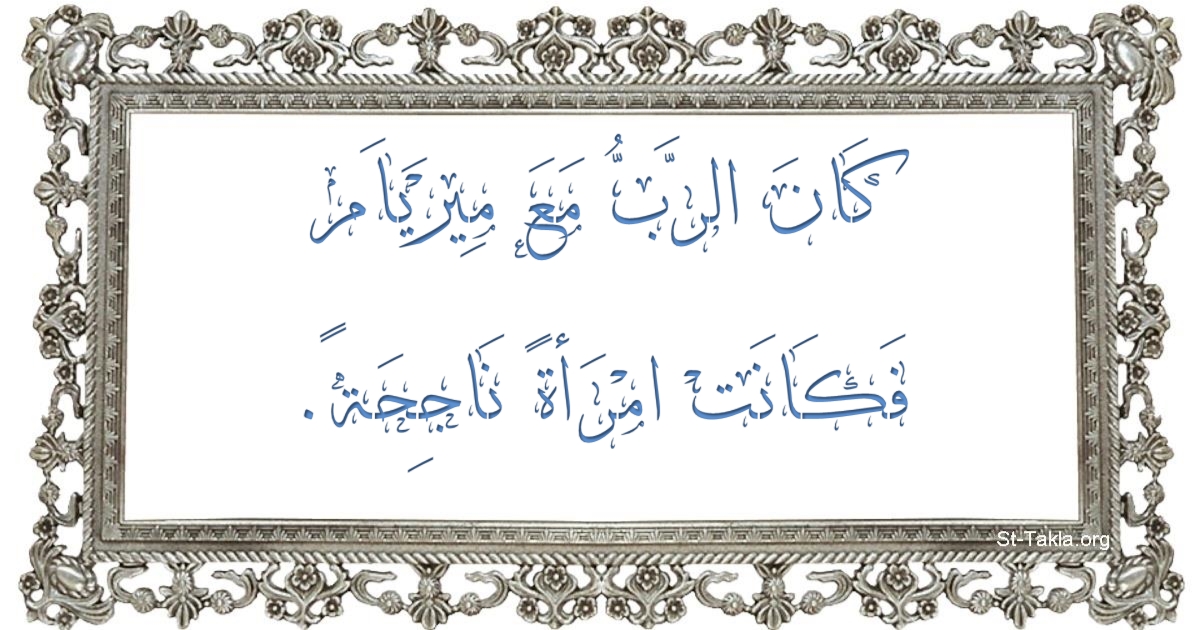 كَانَ الرَّبُّ مَعَ مِيرْيَامَ
فَكَانَتْ امْرَأَةً نَاجِحَةً.
St-Takla.org